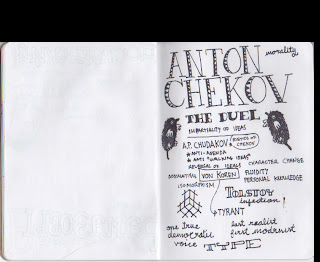 morality
ANTON
CHEKOV
THE DUEL
IMPARTIALITY OF IDEAS
A.P. CHUDAKOV
POETICS OF CHEKOV
ANTI-AGENDA
ANTI "WALKING IDEAS"
REVERSAL OF IDEALS
CHARACTER CHANGE
VON KOREN
FLUIDITY
PERSONAL KNOWLEDGE
ISOMORPHISM
TOLSTOY
infection!
TYRANT
one true
democratic
voice
last realist
first modernist
TYPE